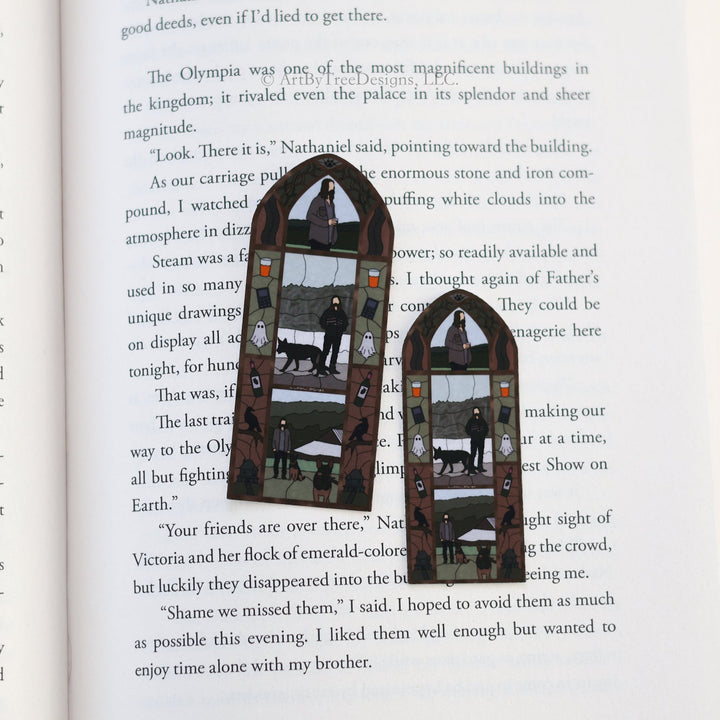 good deeds, even if I'd lied to get there.
The Olympia was one of the most magnificent buildings in
© ArtByTreeDesigns, LLC.
the kingdom; it rivaled even the palace in its splendor and sheer
magnitude.
"Look. There it is," Nathaniel said, pointing toward the building.
As our carriage pull he enormous stone and iron com-
pound, I watched puffing white clouds into the
atmosphere in dizz
Steam was a fa power; so readily available and
used in so many s. I thought again of Father's
unique drawings con They could be
on display all ac ps enagerie here
tonight, for hund arv
That was, if aking
The last trai nd w making our
way to the Oly te. P ur at a time,
all but fighting glimp est Show on
Earth."
"Your friends are over there," Nat ught sight of
Victoria and her flock of emerald-colore ng the crowd,
but luckily they disappeared into the bu eeing me.
"Shame we missed them," I said. I hoped to avoid them as much
as possible this evening. I liked them well enough but wanted to
enjoy time alone with my brother.